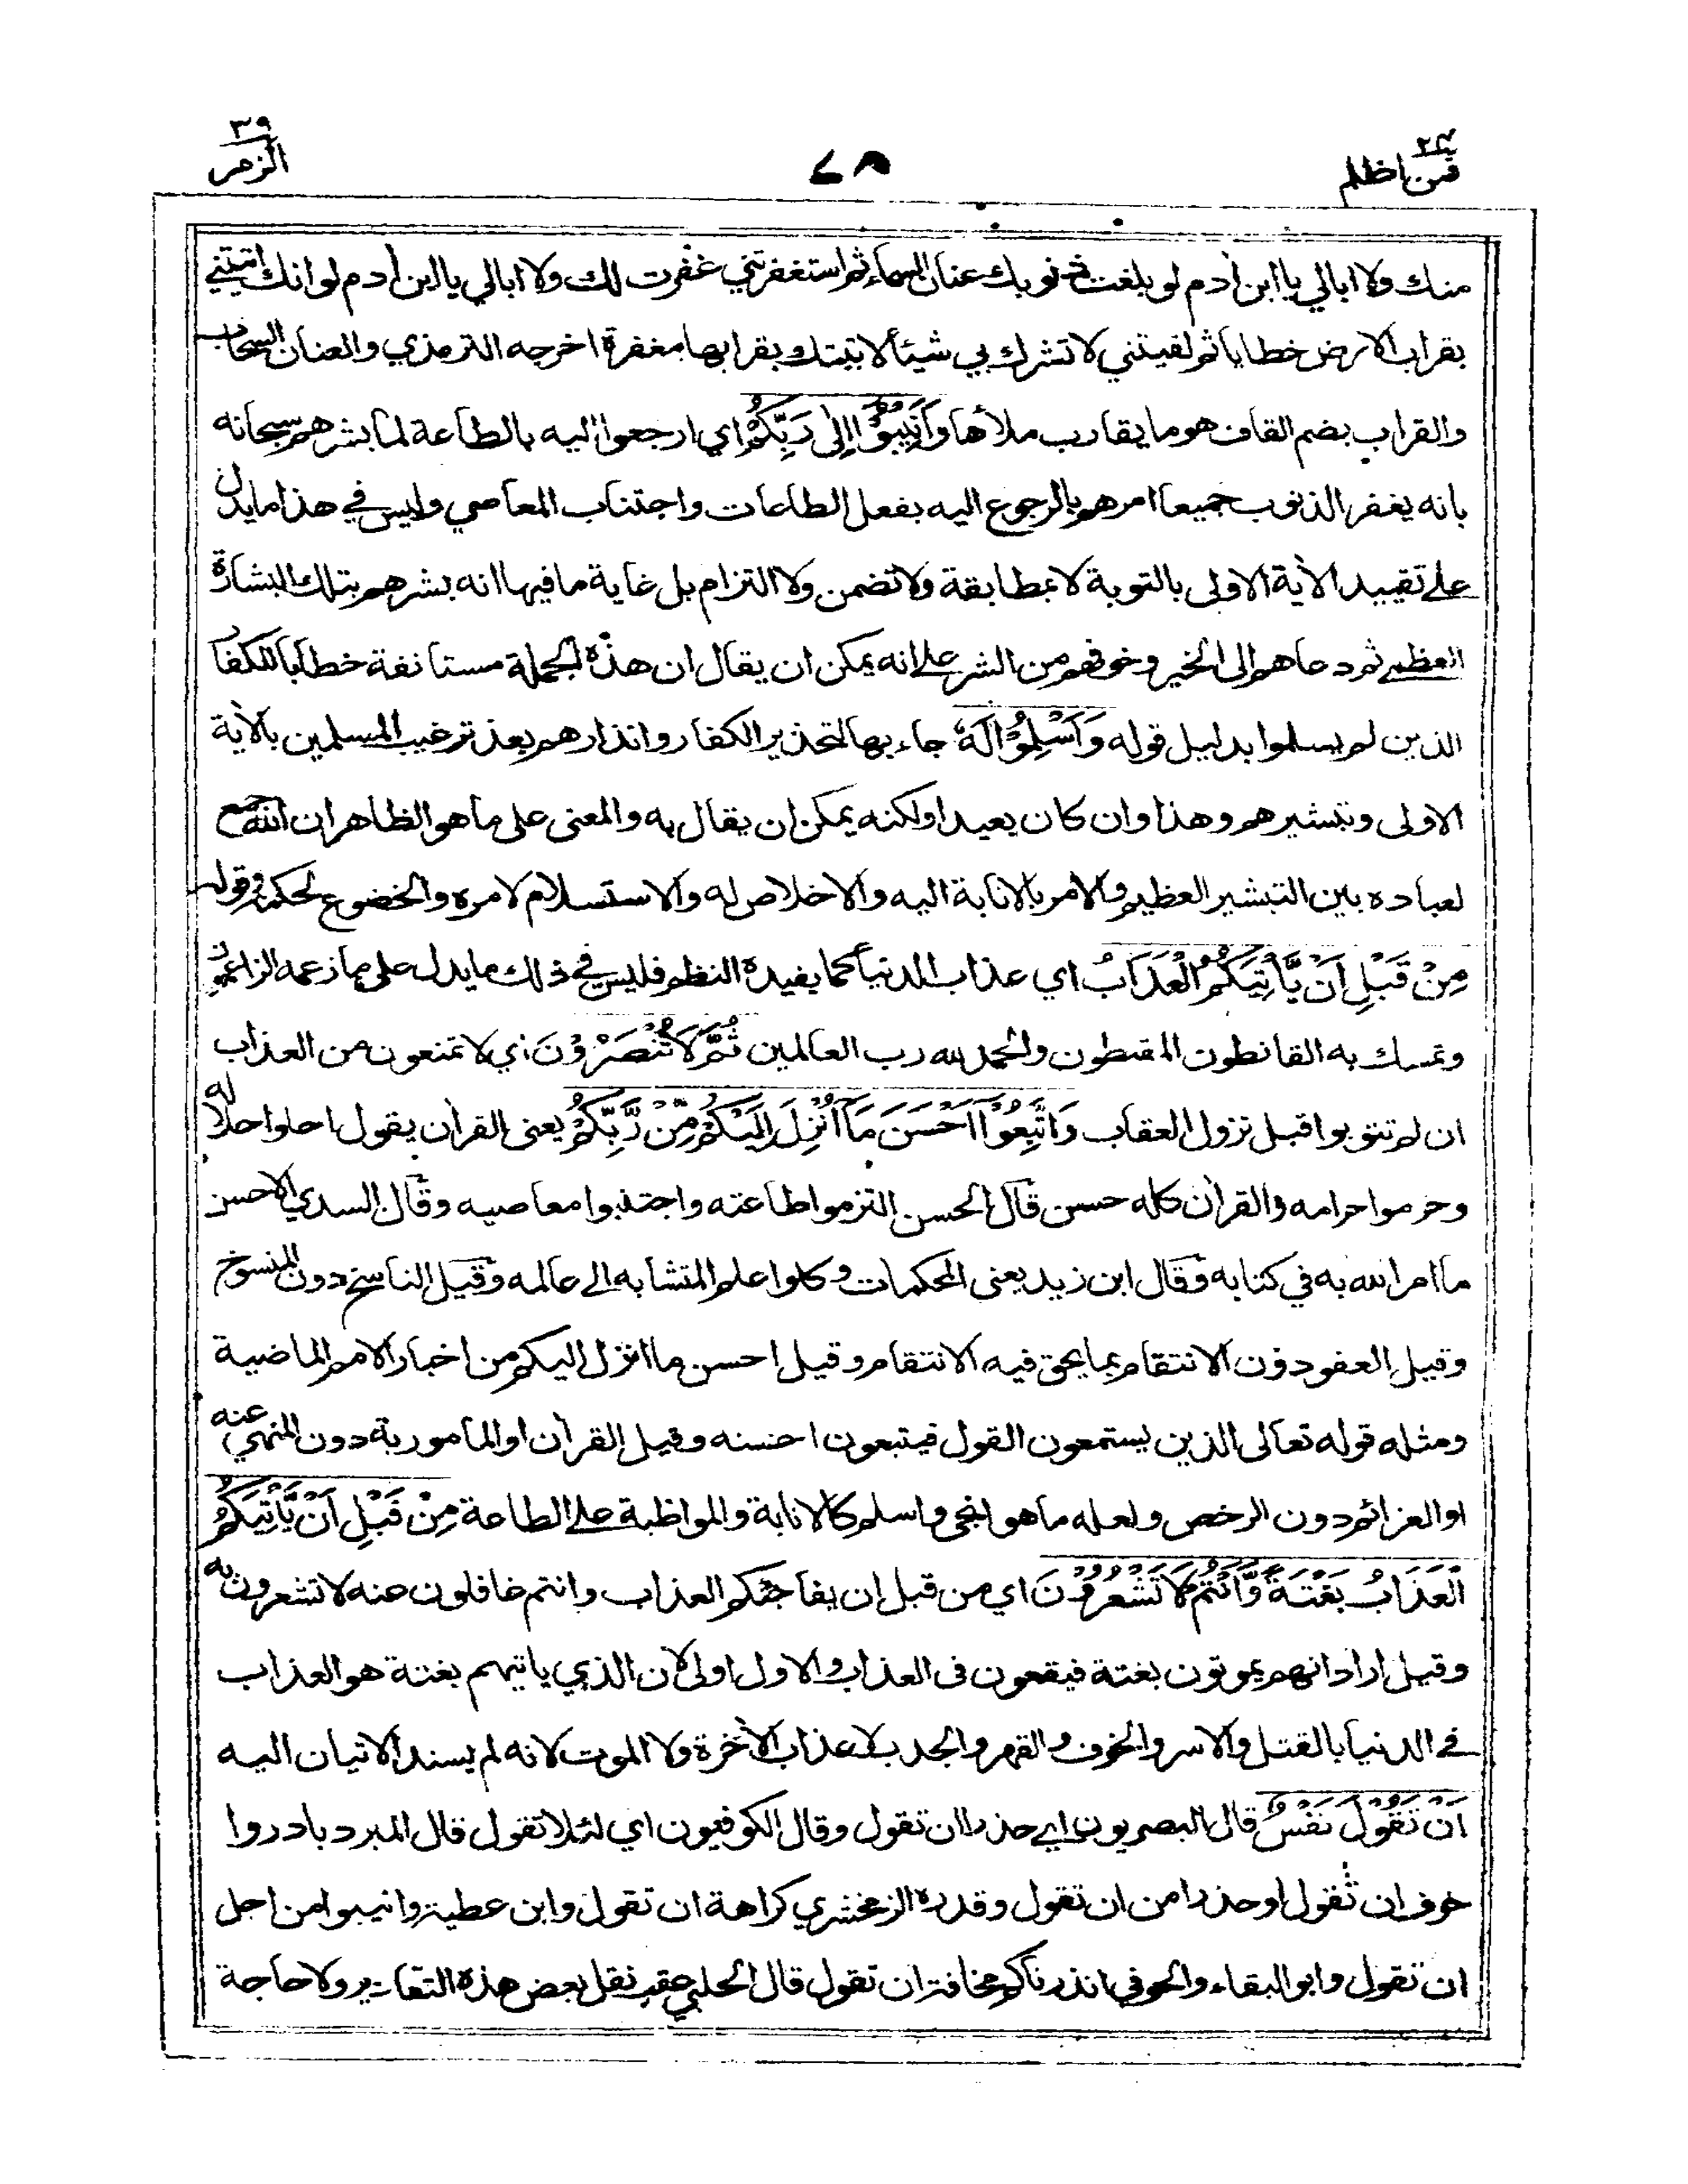 ٢٤
فمن اظلم
٣٩
الزمر
منك ولا ابالي يا ابن أدم لو بلغت ذنوبك عنان السماء ثم استغفرتني غفرت لك ولا ابالي يا ابن أدم لو انك اتيتني
بقراب الارض خطايا ثم لقيتني لا تشرك بي شيئا لاتيتك بقرابها مغفرة اخرجه الترمذي والعنان السحاب
والقراب بضم القاف هو ما يقارب ملأها وَأَنِيبُوْا إِلٰى رَبِّكُمْ اي ارجعوا اليه بالطاعة لما بشرهم سبحانه
بانه يغفر الذنوب جميعا امرهم بالرجوع اليه بفعل الطاعات واجتناب المعاصي وليس في هذا ما يدل
على تقييد الأية الاولى بالتوبة لا بمطابقة ولا تضمن ولا التزام بل غاية ما فيها انه بشرهم بتلك البشارة
العظمى ثم دعاهم الى الخير وخوفهم من الشر على انه يمكن ان يقال ان هذه الجملة مستانفة خطابا للكفار
الذين لم يسلموا بدليل قوله وَأَسْلِمُوْا لَهٗ جاء بها لتحذير الكفار وانذارهم بعد ترغيب المسلمين بالأية
الاولى وتبشيرهم وهذا وان كان بعيدا ولكنه يمكن ان يقال به والمعنى على ما هو الظاهر ان الله جمع
لعباده بين التبشير العظيم والامر بالانابة اليه والاخلاص له والاستسلام لامره والخضوع لحكمه وقوله
مِنْ قَبْلِ اَنْ يَّأْتِيَكُمُ الْعَذَابُ اي عذاب الدنيا كما يفيده النظم فليس في ذلك ما يدل على ما زعمه الزاعمون
وتمسك به القانطون المقنطون والحمد لله رب العالمين ثُمَّ لَا تُنْصَرُوْنَ اي لا تمنعون من العذاب
ان لم تتوبوا قبل نزول العقاب وَاتَّبِعُوْا اَحْسَنَ مَآ اُنْزِلَ اِلَيْكُمْ مِّنْ رَّبِّكُمْ يعنى القرأن يقول احلوا حلاله
وحرموا حرامه والقرأن كله حسن قال الحسن التزموا طاعته واجتنبوا معاصيه وقال السدي الاحسن
ما امر الله به في كتابه وقال ابن زيد يعنى المحكمات وكلوا علم المتشابه الى عالمه وقيل الناسخ دون المنسوخ
وقيل العفو دون الانتقام بما يحق فيه الانتقام وقيل احسن ما انزل اليكم من اخبار الامم الماضية
ومثله قوله تعالى الذين يستمعون القول فيتبعون احسنه وقيل القرأن او المامور به دون المنهي عنه
او العزائم دون الرخص ولعله ما هو انجى واسلم كالانابة والمواظبة على الطاعة مِنْ قَبْلِ اَنْ يَّأْتِيَكُمُ
الْعَذَابُ بَغْتَةً وَّاَنْتُمْ لَا تَشْعُرُوْنَ اي من قبل ان يفاجئكم العذاب وانتم غافلون عنه لا تشعرون به
وقيل اراد انهم يموتون بغتة فيقعون فى العذاب والاول اولى لان الذي ياتيهم بغتة هو العذاب
في الدنيا بالقتل والاسر والخوف والقهر والجدب لا عذاب الأخرة ولا الموت لانه لم يسند الاتيان اليه
اَنْ تَقُوْلَ نَفْسٌ قال البصريون اي حذرا ان تقول وقال الكوفيون اي لئلا تقول قال المبرد بادروا
خوف ان تقول او حذرا من ان تقول وقدره الزمخشري كراهة ان تقول وابن عطية وانيبوا من اجل
ان تقول وابو البقاء والحوفي انذرناكم مخافة ان تقول قال الحلبي عقب نقل بعض هذه التقادير ولا حاجة